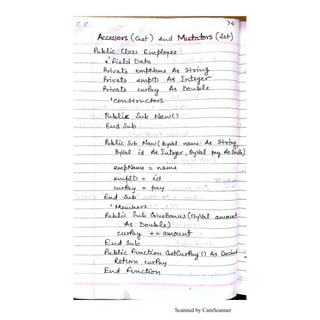 C.F.
74
Accessors (Get) and Mutators (Set)
Public Class Employee
' Field Data
Private empName As String
Private empID As Integer
Private currPay As Double
' Constructors
Public Sub New()
End Sub
Public Sub New (ByVal name As String,
ByVal id As Integer, ByVal pay As
empName = name
empID = id
currPay = pay
End Sub
' Members
Public Sub GiveBonus (ByVal amount
As Double)
currPay += amount
End Sub
Public Function GetCurrPay () As
Return currPay
End Function
Scanned by CamScanner